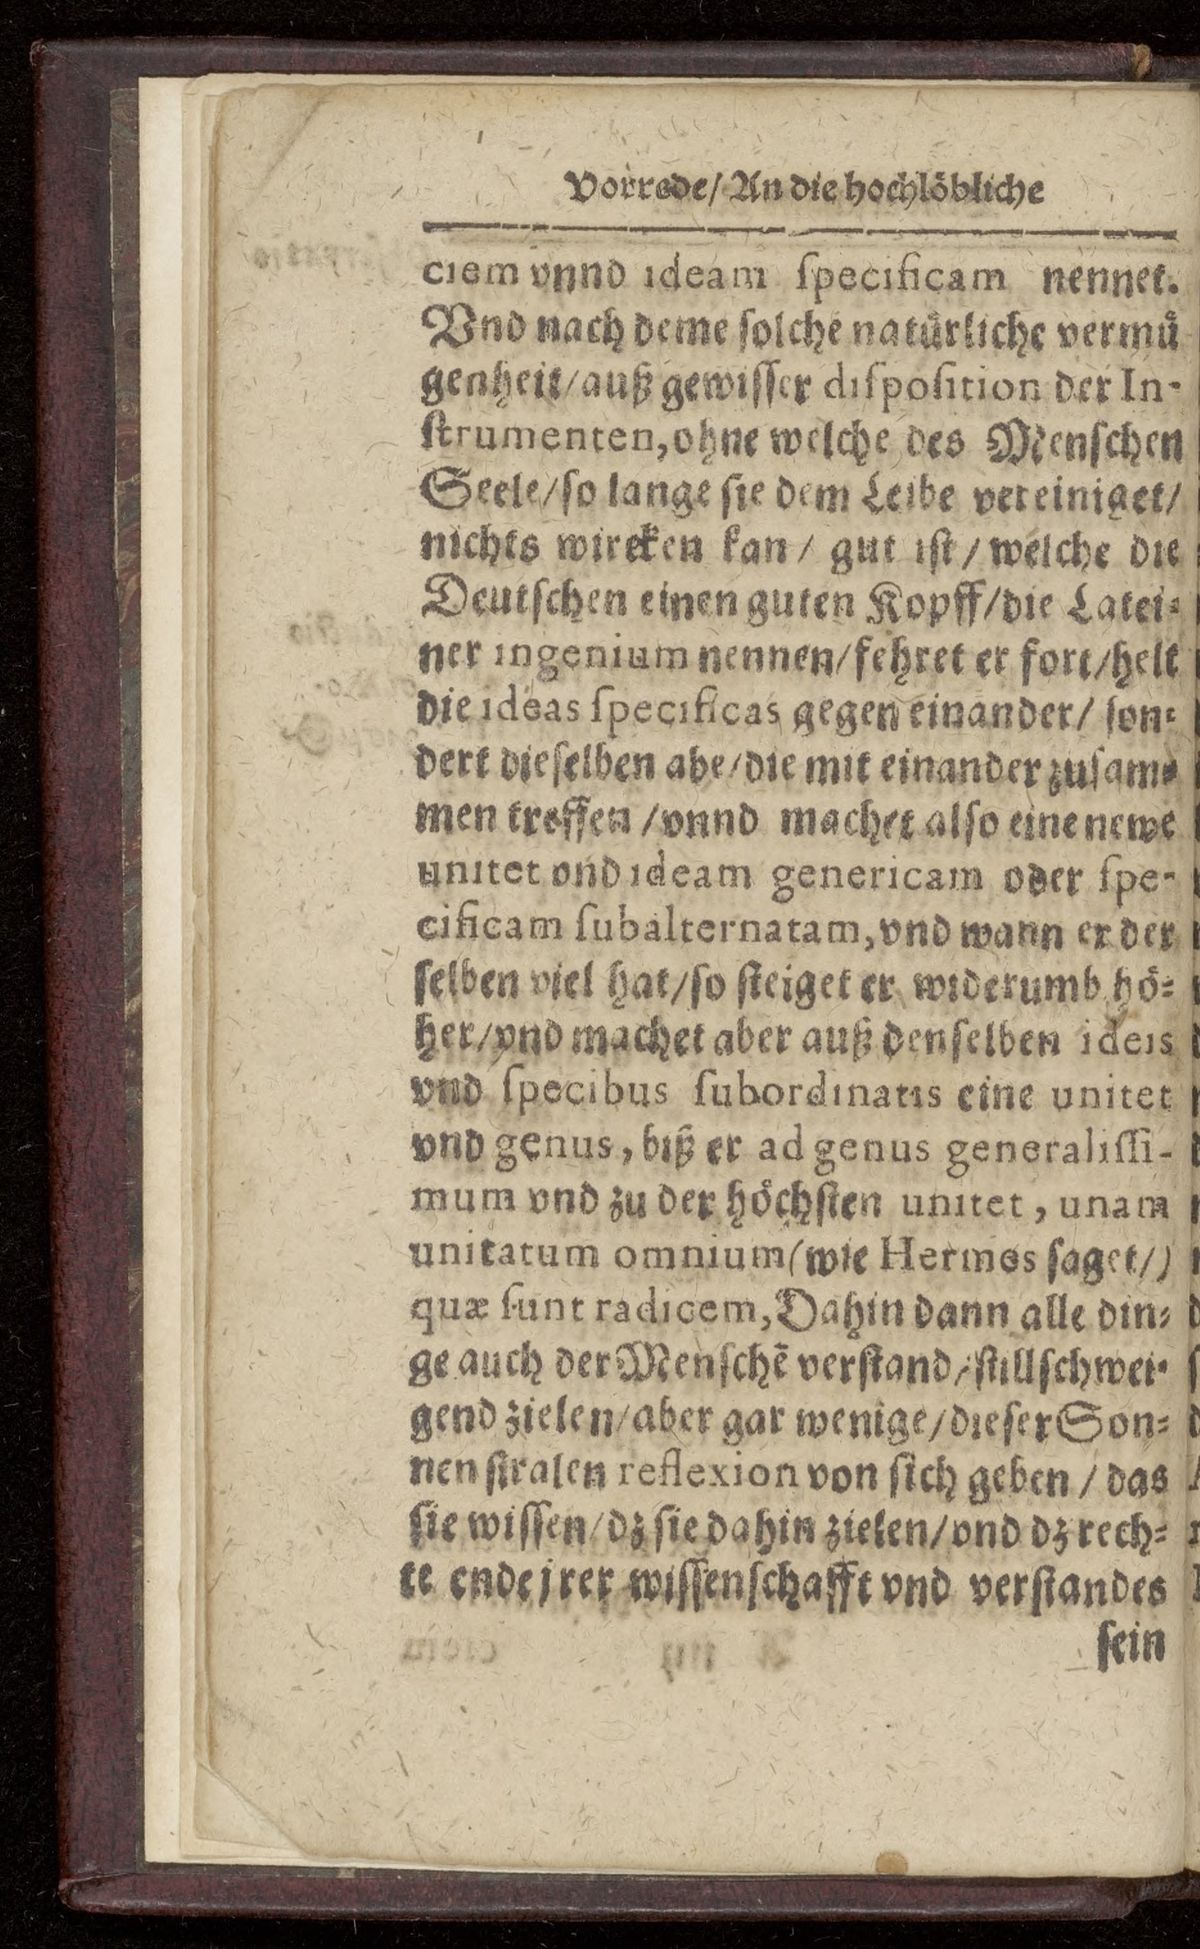 Vorrede/ An die hochlöbliche
ciem vnnd ideam ſpecificam nennet.
Vnd nach deme ſolche natuͤrliche vermuͤ
genheit/ auß gewiſſer diſpoſition der In-
ſtrumenten, ohne welche des Menſchen
Seele/ ſo lange ſie dem Leibe vereiniget/
nichts wircken kan/ gut iſt/ welche die
Deutſchen einen guten Kopff/ die Latei-
ner ingenium nennen/ fehret er fort/ helt
die ideas ſpecificas gegen einander/ ſon-
dert dieſelben abe/ die mit einander zuſam-
men treffen/ vnnd machet alſo eine newe
unitet vnd ideam genericam oder ſpe-
cificam ſubalternatam, vnd wann er der
ſelben viel hat/ ſo ſteiget er widerumb hoͤ-
her/ vnd machet aber auß denſelben ideis
vnd ſpecibus ſubordinatis eine unitet
vnd genus, biß er ad genus generaliſſi-
mum vnd zu der hoͤchſten unitet, unam
unitatum omnium (wie Hermes ſaget/)
quæ ſunt radicem, Dahin dann alle din-
ge auch der Menſchẽ verſtand/ ſtillſchwei-
gend zielen/ aber gar wenige/ dieſer Son-
nen ſtralen reflexion von ſich geben/ das
ſie wiſſen/ dꝫ ſie dahin zielen/ vnd dꝫ rech-
te ende jrer wiſſenſchafft vnd verſtandes
ſein